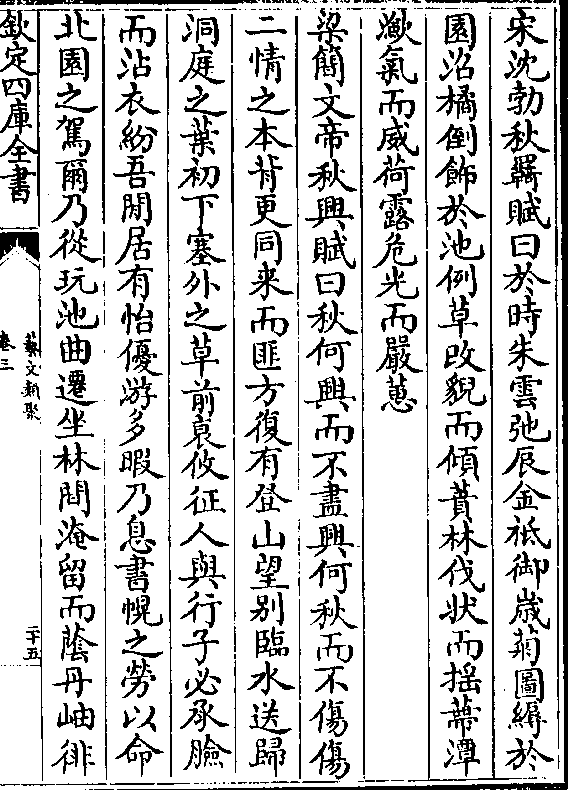 宋沈勃秋羇賦曰於時朱雲弛辰金祗御嵗菊圖縟於
園沼橘倒飾於池例草改貌而傾蕡林伐状而揺蔕潭
瀫氣而威荷露危光而嚴蕙
梁簡文帝秋興賦曰秋何興而不盡興何秋而不傷傷
二情之本背更同来而匪方復有登山望别臨水送歸
洞庭之葉初下塞外之草前衰攸征人與行子必承臉
而沾衣紛吾閒居有怡優游多暇乃息書幌之勞以命
北園之駕爾乃從玩池曲遷坐林間淹留而蔭丹岫徘
欽定四庫全書
藝文類聚
卷三
二十五